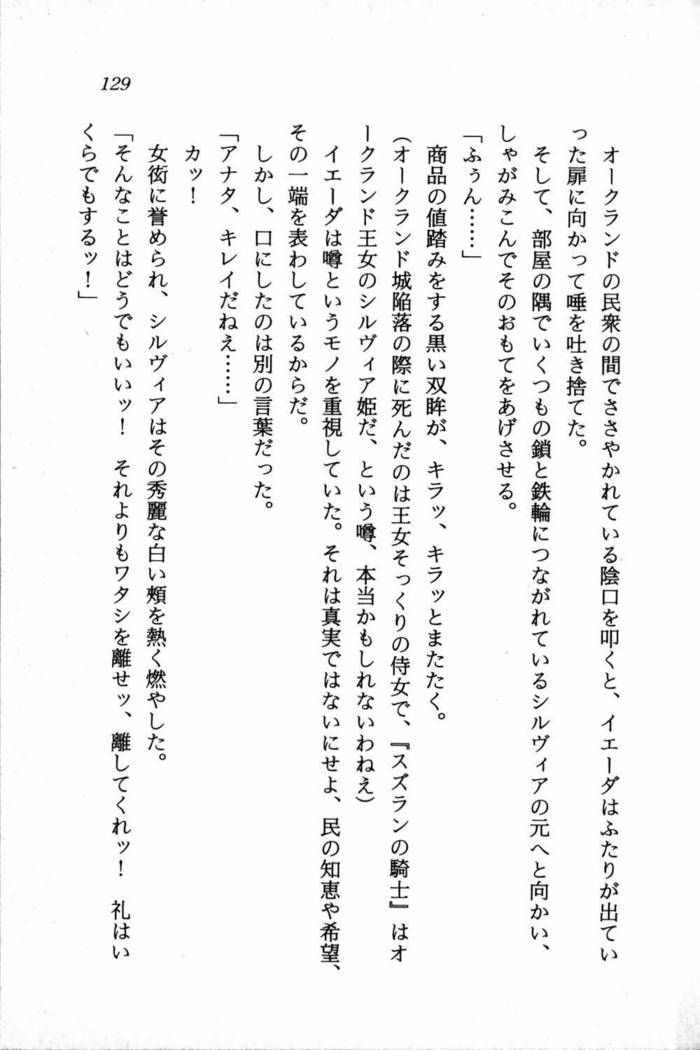 129
オークランドの民衆の間でささやかれている陰口を叩くと、イエーダはふたりが出てい
った扉に向かって唾を吐き捨てた。
そして、部屋の隅でいくつもの鎖と鉄輪につながれているシルヴィアの元へと向かい、
しゃがみこんでそのおもてをあげさせる。
「ふぅん……」
商品の値踏みをする黒い双眸が、キラッ、キラッとまたたく。
（オークランド城陥落の際に死んだのは王女そっくりの侍女で、『スズランの騎士』はオ
ークランド王女のシルヴィア姫だ、という噂、本当かもしれないわねえ）
イエーダは噂というモノを重視していた。それは真実ではないにせよ、民の知恵や希望、
その一端を表わしているからだ。
しかし、口にしたのは別の言葉だった。
「アナタ、キレイだねえ……」
カッ！
女衒に誉められ、シルヴィアはその秀麗な白い頬を熱く燃やした。
「そんなことはどうでもいいッ！　それよりもワタシを離せッ、離してくれッ！　礼はい
くらでもするッ！」